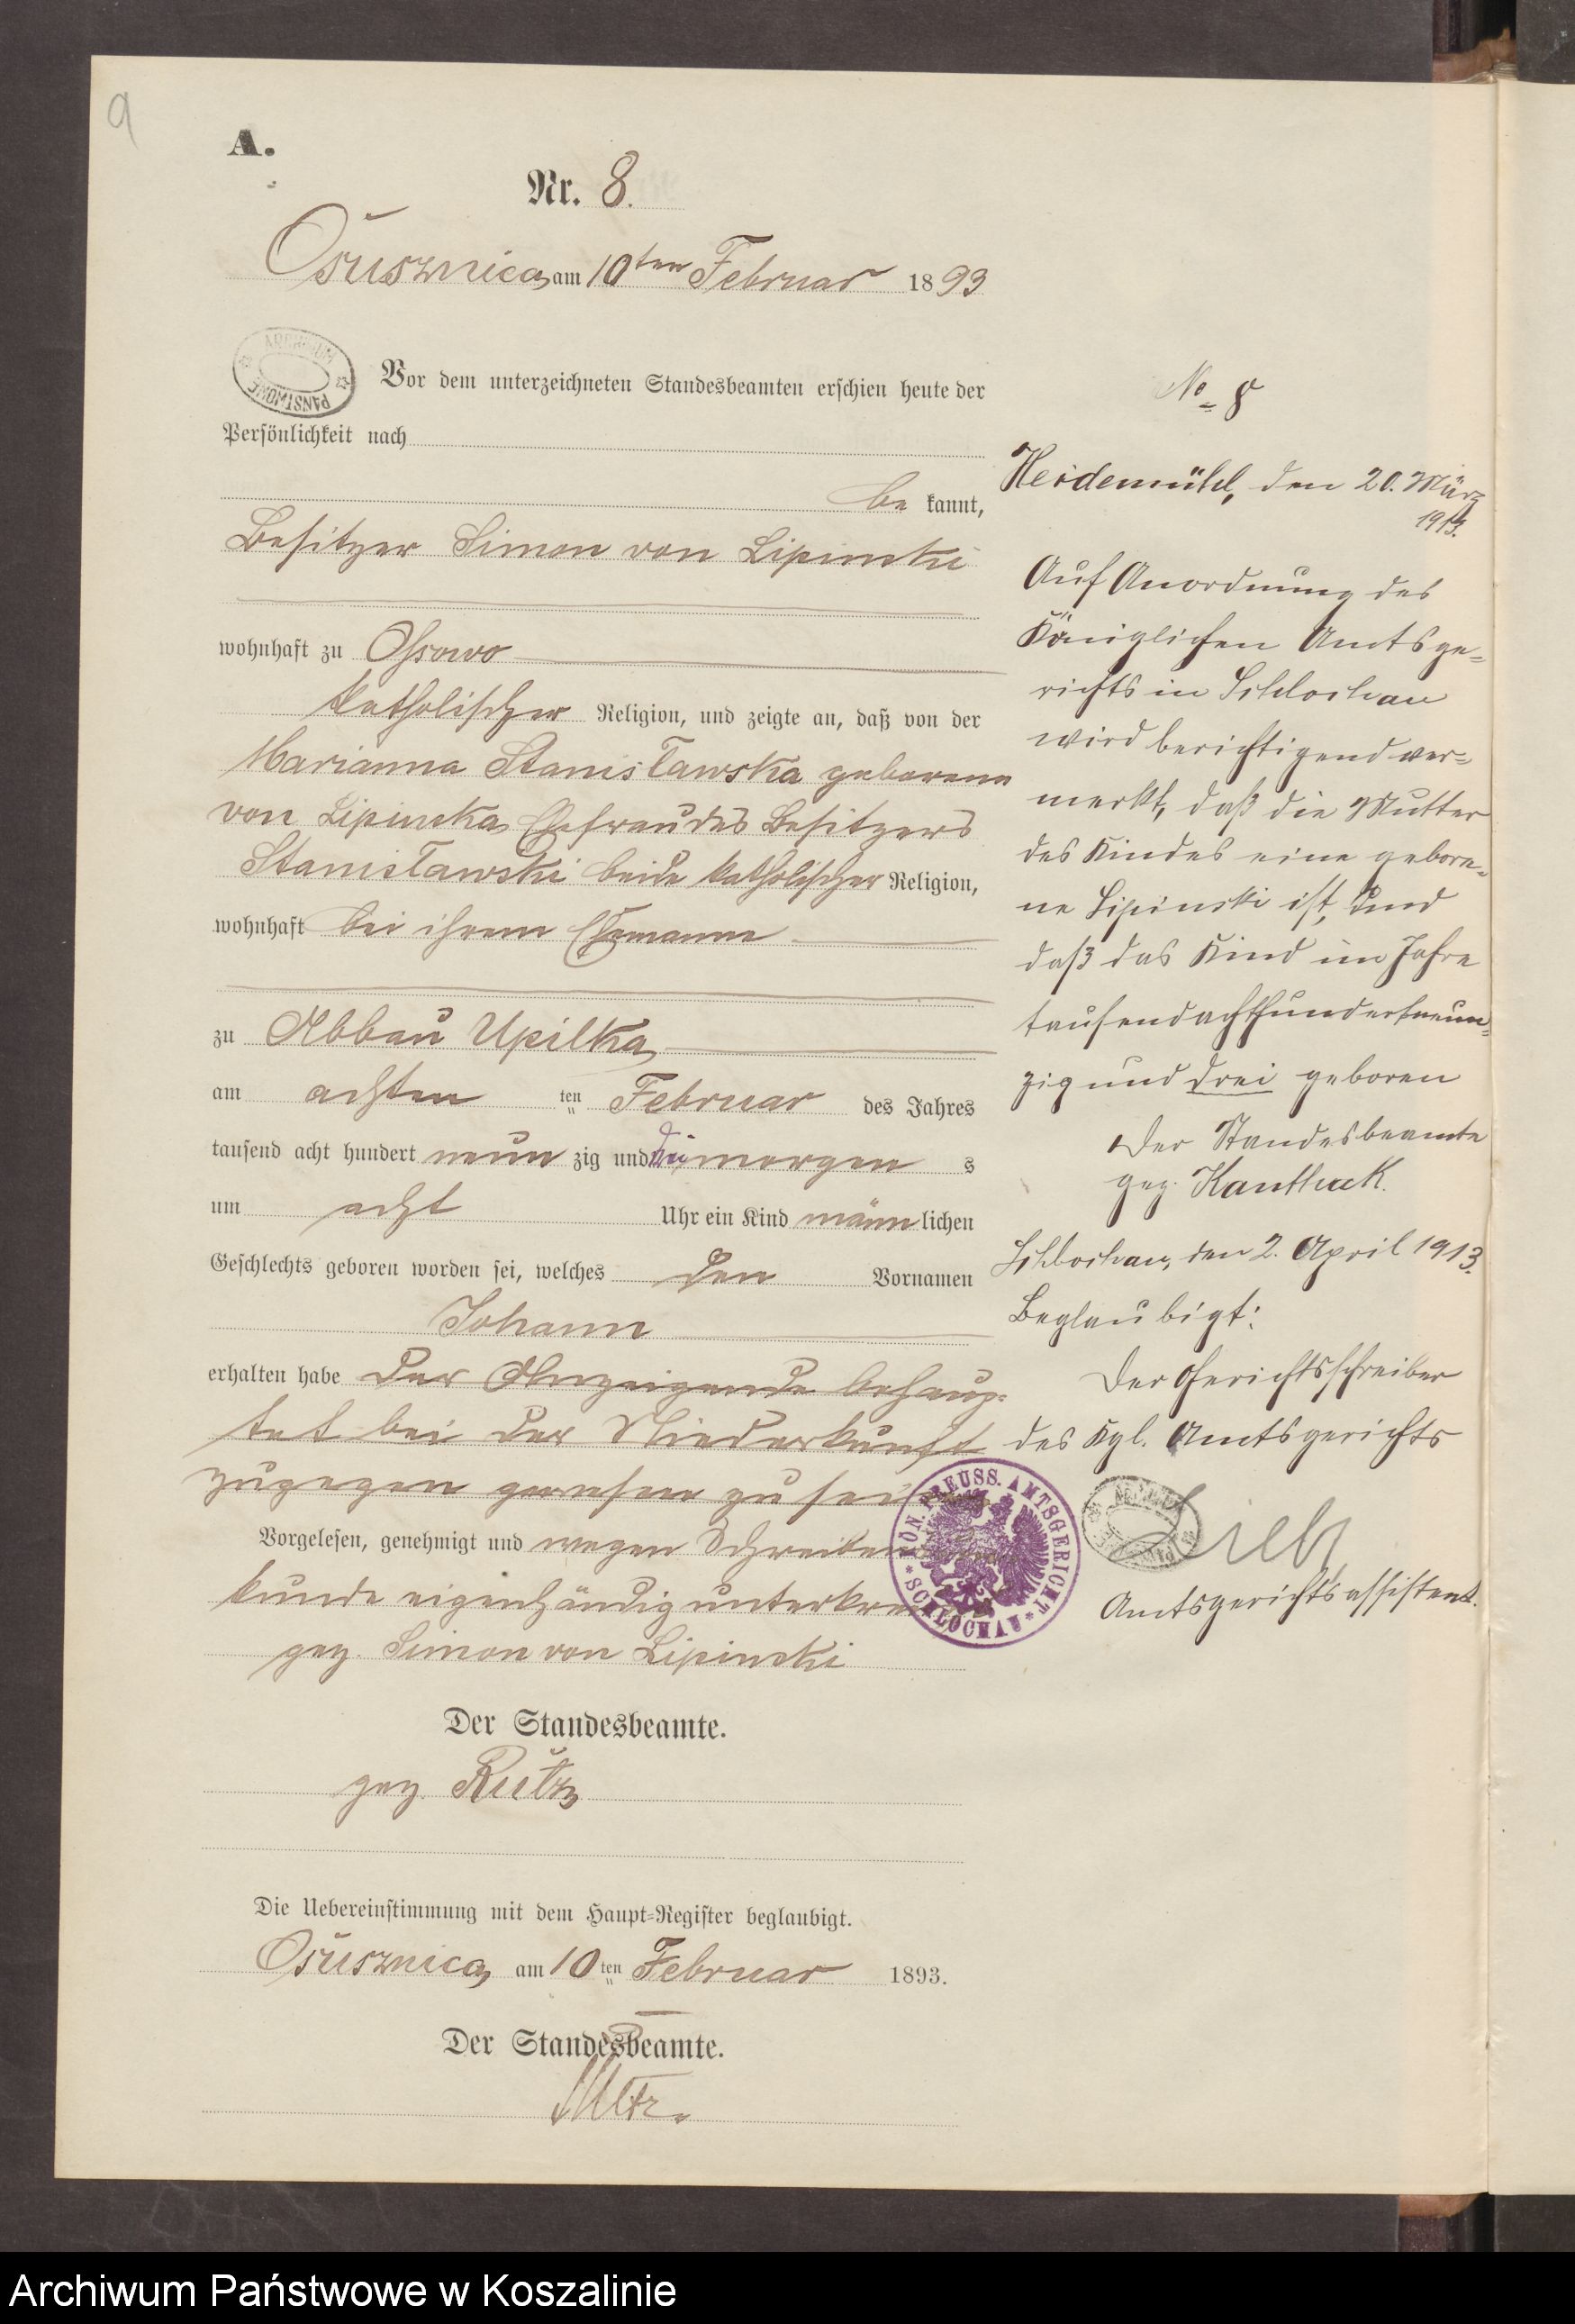 9
A.
Nr. 8.
Osusznica am 10ten Februar 1893
ARCHIWUM PAŃSTWOWE
Vor dem unterzeichneten Standesbeamten erschien heute der
Persönlichkeit nach
be kannt,
Besitzer Simon von Lipinski
wohnhaft zu Ossowo
katholischer Religion, und zeigte an, daß von der
Marianna Stanisławska geborene
von Lipinska Ehefrau des Besitzers
Stanisławski beide katholischer Religion,
wohnhaft bei ihrem Ehemanne
zu Abbau Upilka
am achten ten Februar des Jahres
tausend acht hundert neun zig und drei morgen s
um acht Uhr ein Kind männ lichen
Geschlechts geboren worden sei, welches den Vornamen
Johann
erhalten habe Der Anzeigende behaup-
tet bei der Niederkunft
zugegen gewesen zu sein
Vorgelesen, genehmigt und wegen Schreibens
kunde eigenhändig unterkreuzt
gez. Simon von Lipinski
Der Standesbeamte.
gez. Rutz
Die Uebereinstimmung mit dem Haupt-Register beglaubigt.
Osusznica, am 10 ten Februar 1893.
Der Standesbeamte.
Rutz.
No 8
Heidemühl, den 20. März
1913.
Auf Anordnung des
Königlichen Amtsge-
richts in Schlochau
wird berichtigend ver-
merkt, daß die Mutter
des Kindes eine gebore-
ne Lipinski ist, und
daß das Kind im Jahre
tausendachthundertneun-
zig und drei geboren
Der Standesbeamte
gez. Kanthack.
Schlochau, den 2. April 1913.
Beglaubigt:
Der Gerichtsschreiber
des Kgl. Amtsgerichts
KÖN. PREUSS. AMTSGERICHT * SCHLOCHAU *
Amtsgerichtsassistent.
Archiwum Państwowe w Koszalinie